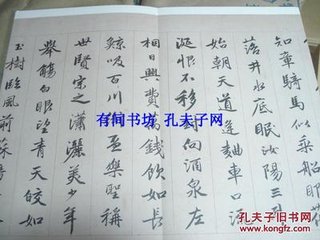 知章騎馬似乘船眼花
落井水底眠汝陽三
始朝天道逢麹車口流
涎恨不移封向酒泉左
相日興費萬錢飲如長
鯨吸百川銜盃樂聖稱
世賢宗之瀟灑美少年
舉觴白眼望青天皎如
玉樹臨風前蘇晉
有间书坊 孔夫子网